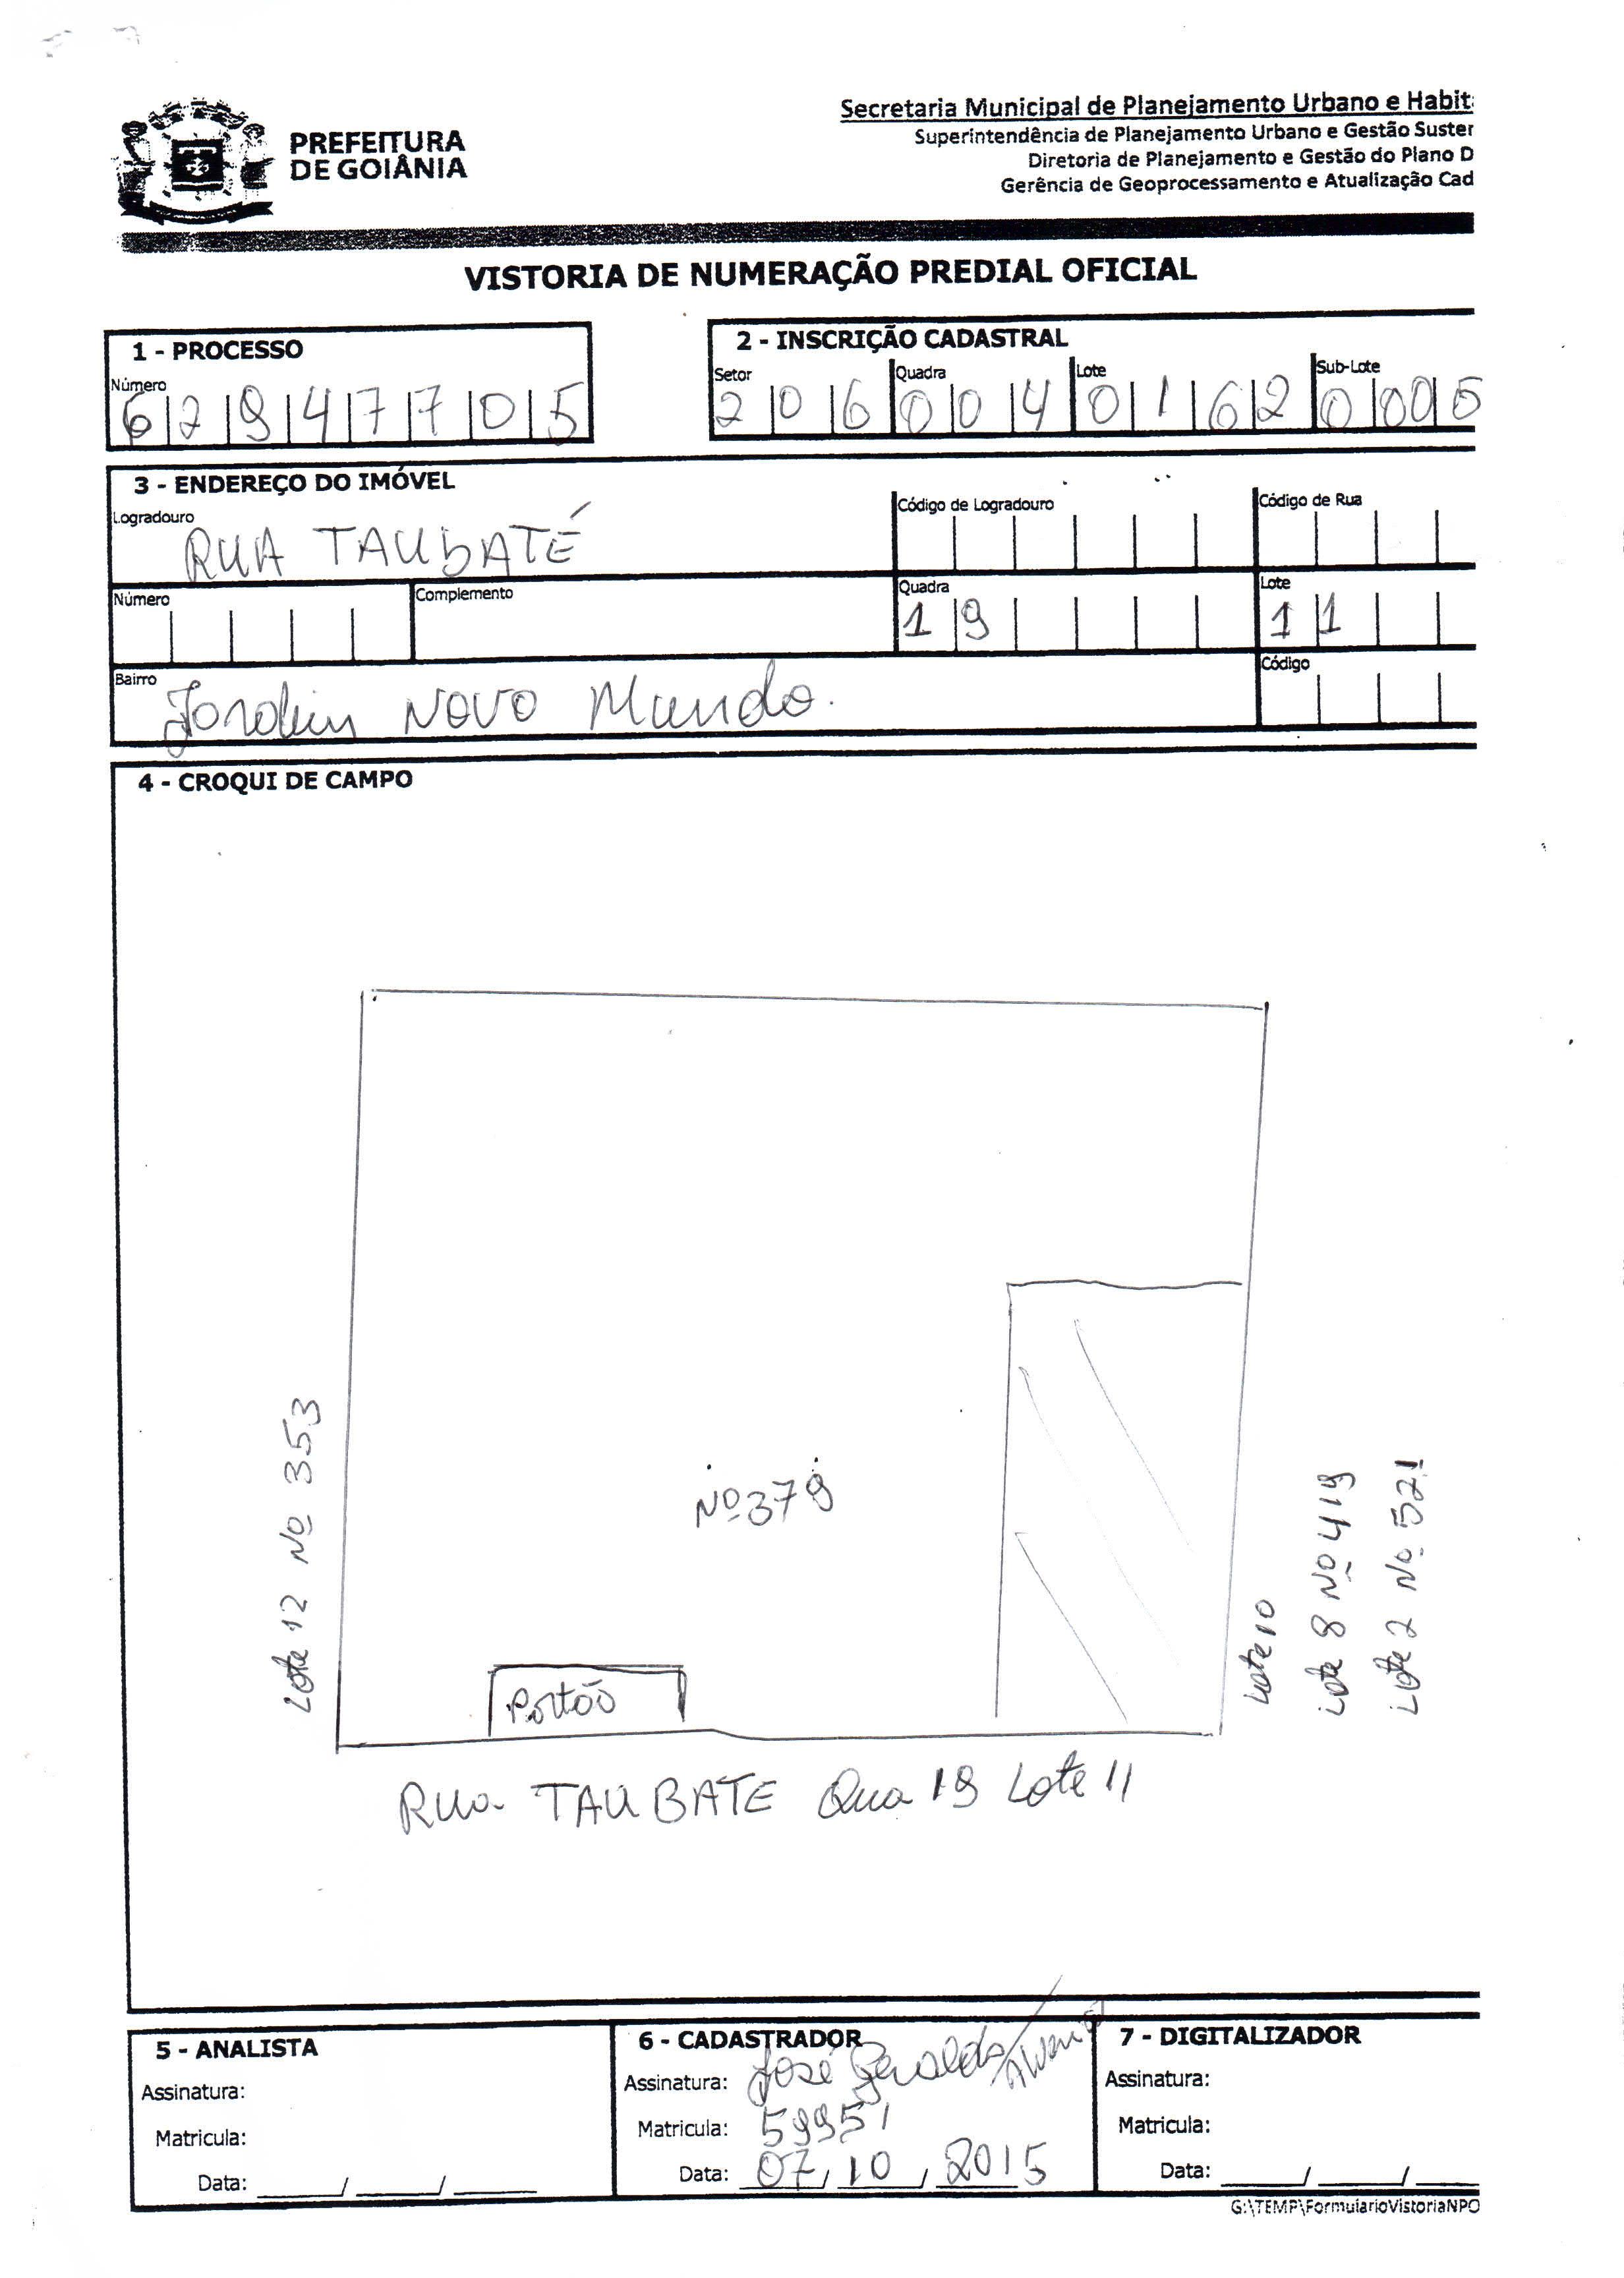 PREFEITURA
DE GOIÂNIA
Secretaria Municipal de Planejamento Urbano e Habit
Superintendência de Planejamento Urbano e Gestão Suster
Diretoria de Planejamento e Gestão do Plano D
Gerência de Geoprocessamento e Atualização Cad
VISTORIA DE NUMERAÇÃO PREDIAL OFICIAL
1 - PROCESSO
Número
6 2 9 4 7 7 0 5
2 - INSCRIÇÃO CADASTRAL
Setor Quadra Lote Sub-Lote
2 0 6 0 0 4 0 1 6 2 0 0 0 5
3 - ENDEREÇO DO IMÓVEL
Logradouro
RUA TAUBATÉ
Código de Logradouro
Código de Rua
Número
Complemento
Quadra
1 9
Lote
1 1
Bairro
Jardim NOVO Mundo.
Código
4 - CROQUI DE CAMPO
Lote 12 Nº 353
Nº 379
Portão
Lote 10
Lote 8 Nº 419
Lote 2 Nº 521
Rua TAUBATE Qua 19 Lote 11
5 - ANALISTA
Assinatura:
Matricula:
Data: / /
6 - CADASTRADOR
Assinatura: José Geraldo
Matricula: 59951
Data: 07, 10, 2015
7 - DIGITALIZADOR
Assinatura:
Matricula:
Data: / /
G:\TEMP\FormularioVistoriaNPO